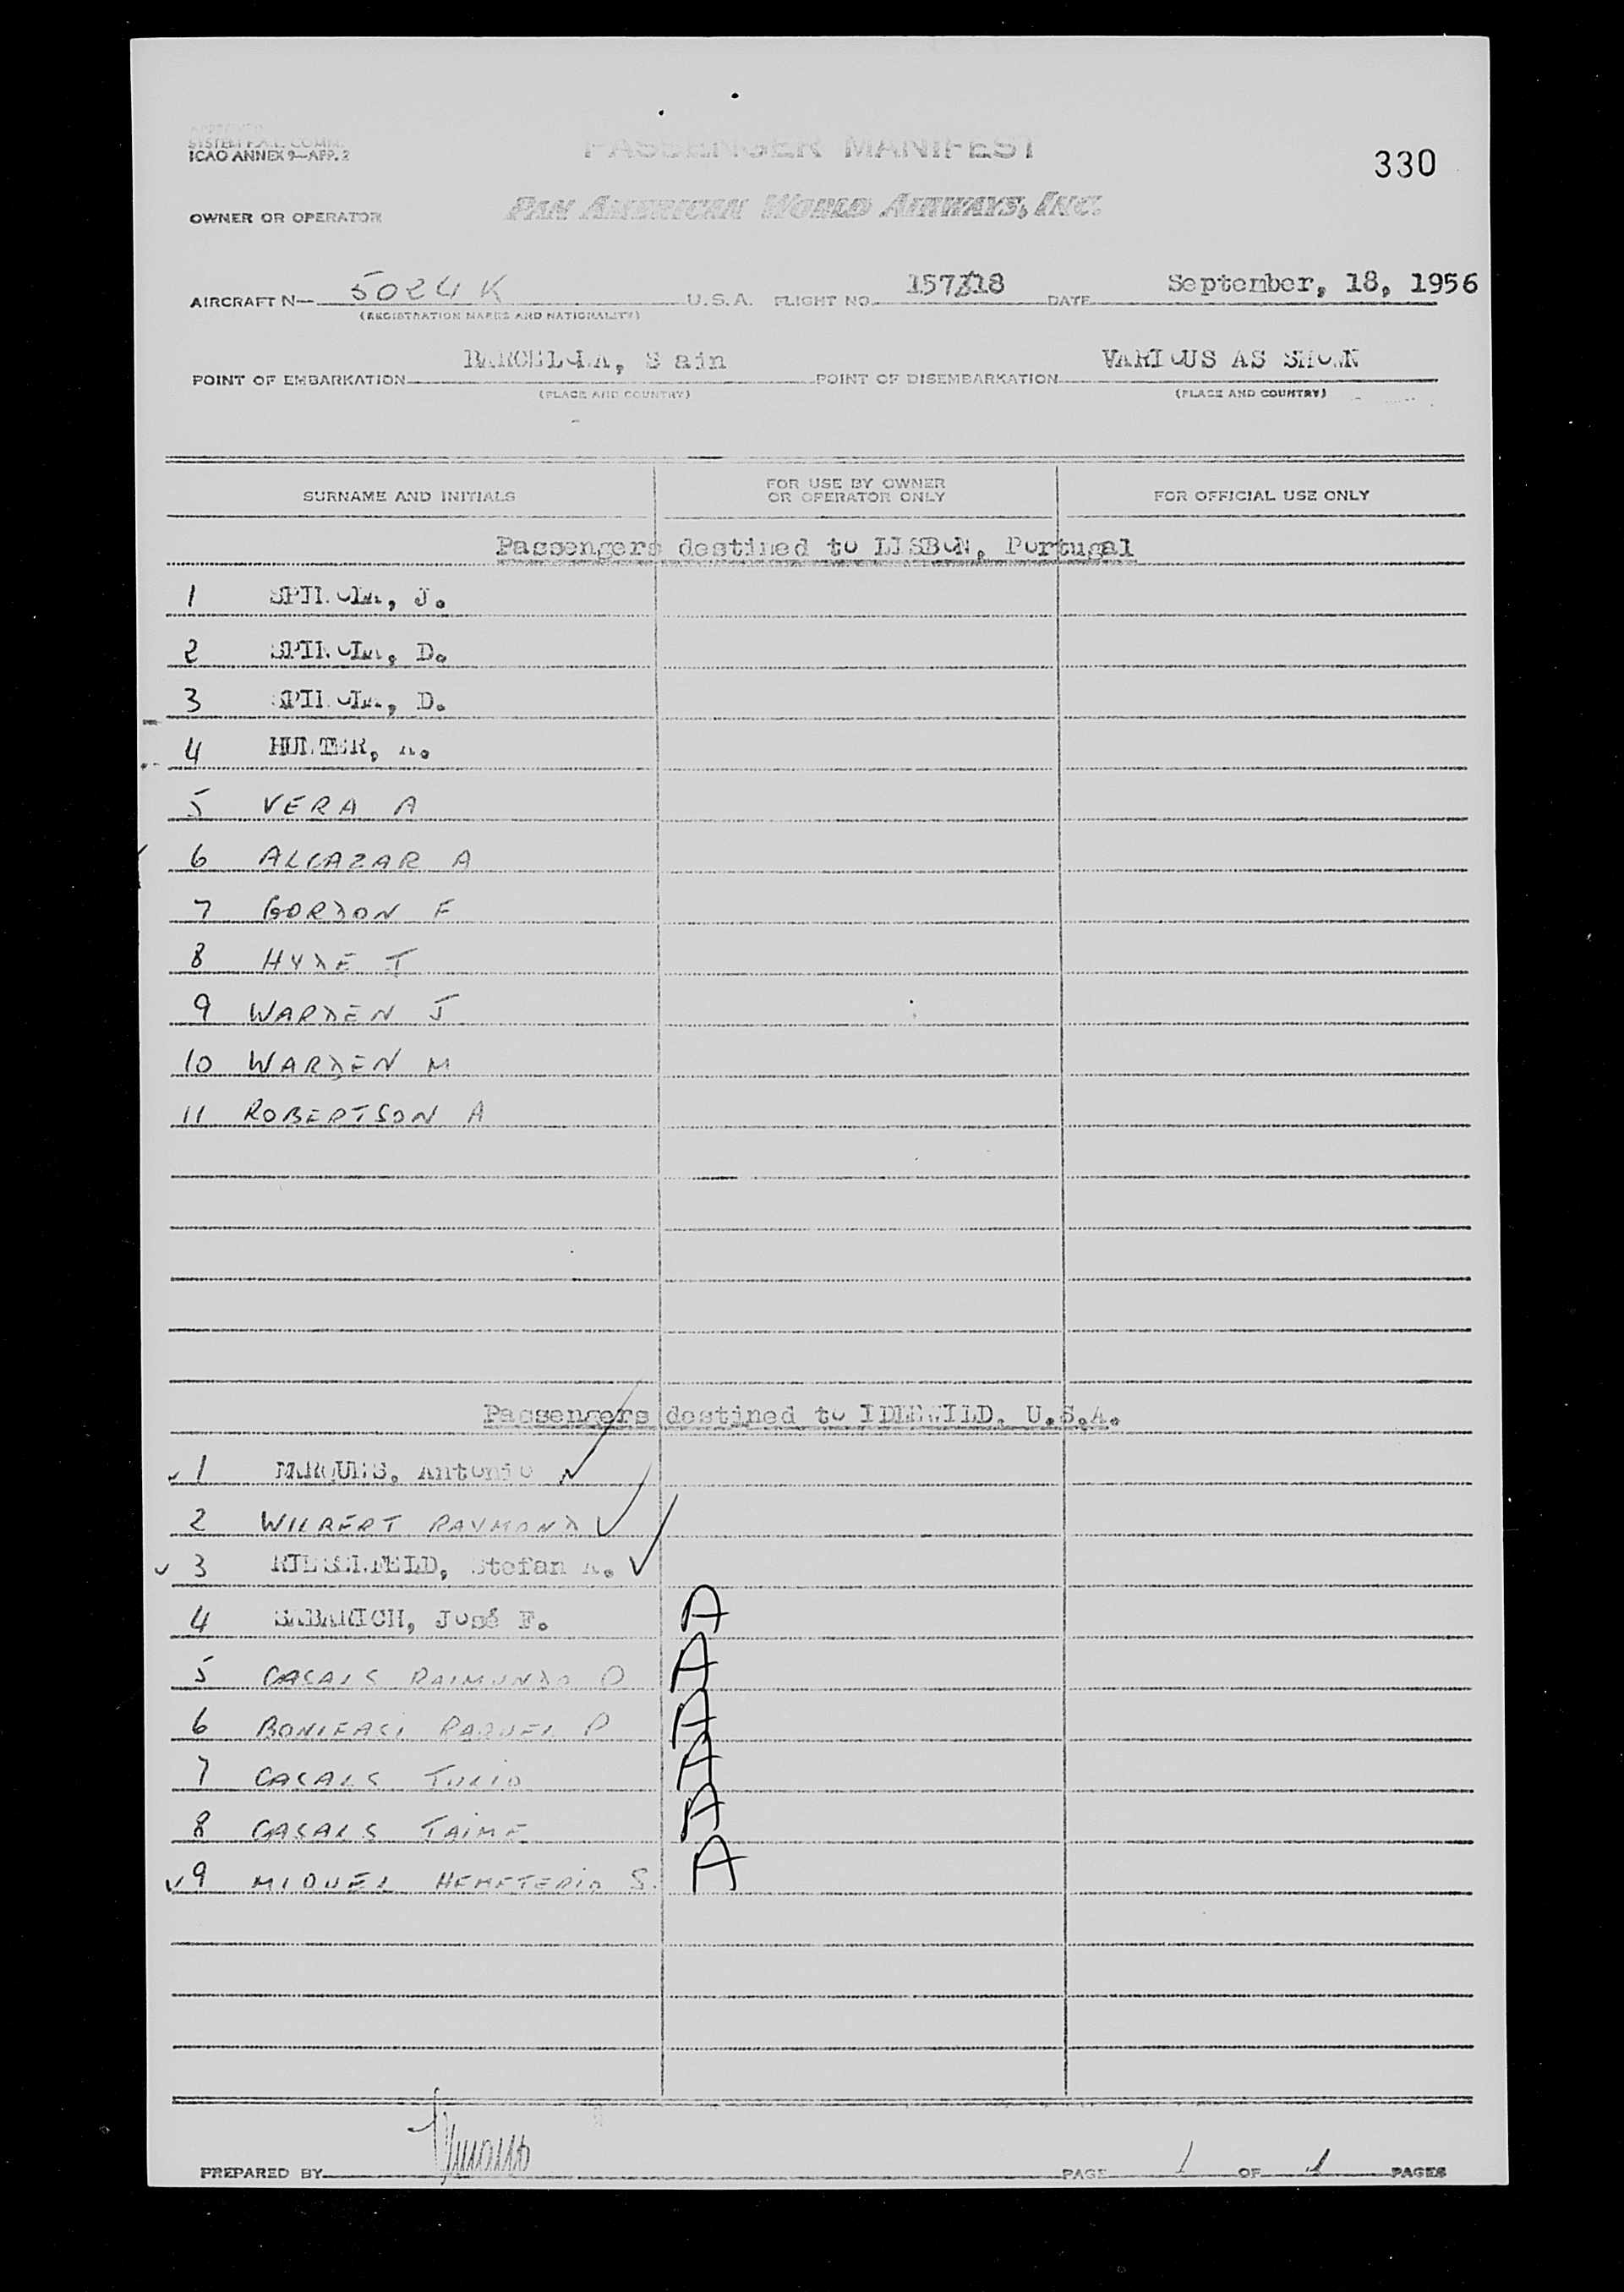 SYSTEM P.A.L. COMM.
ICAO ANNEX 9—APP. 2
PASSENGER MANIFEST
330
OWNER OR OPERATOR
PAN AMERICAN WORLD AIRWAYS, INC.
AIRCRAFT N— 5024K U.S.A. FLIGHT NO. DATE September, 18, 1956
(REGISTRATION MARKS AND NATIONALITY)
POINT OF EMBARKATION BARCELONA, S ain POINT OF DISEMBARKATION VARIOUS AS SHOWN
(PLACE AND COUNTRY) (PLACE AND COUNTRY)
SURNAME AND INITIALS FOR USE BY OWNER OR OPERATOR ONLY FOR OFFICIAL USE ONLY
Passengers destined to LISBON, Portugal
1 SPINOLA, J.
2 SPINOLA, D.
3 SPINOLA, D.
4 HUNTER, A.
5 VERA A
6 ALCAZAR A
7 GORDON F
8 HYDE T
9 WARDEN J
10 WARDEN M
11 ROBERTSON A
Passengers destined to IDLEWILD, U.S.A.
1 MARQUES, Antonio
2 WILBERT RAYMOND
3 Stefan A.
4 SABARICH, José F. A
5 CASALS RAIMUNDO P A
6 BONIFASI RAQUEL P A
7 CASALS JULIO A
8 CASALS JAIME A
9 MIQUEL HEMETERIO S. A
PREPARED BY PAGE 1 OF 1 PAGES